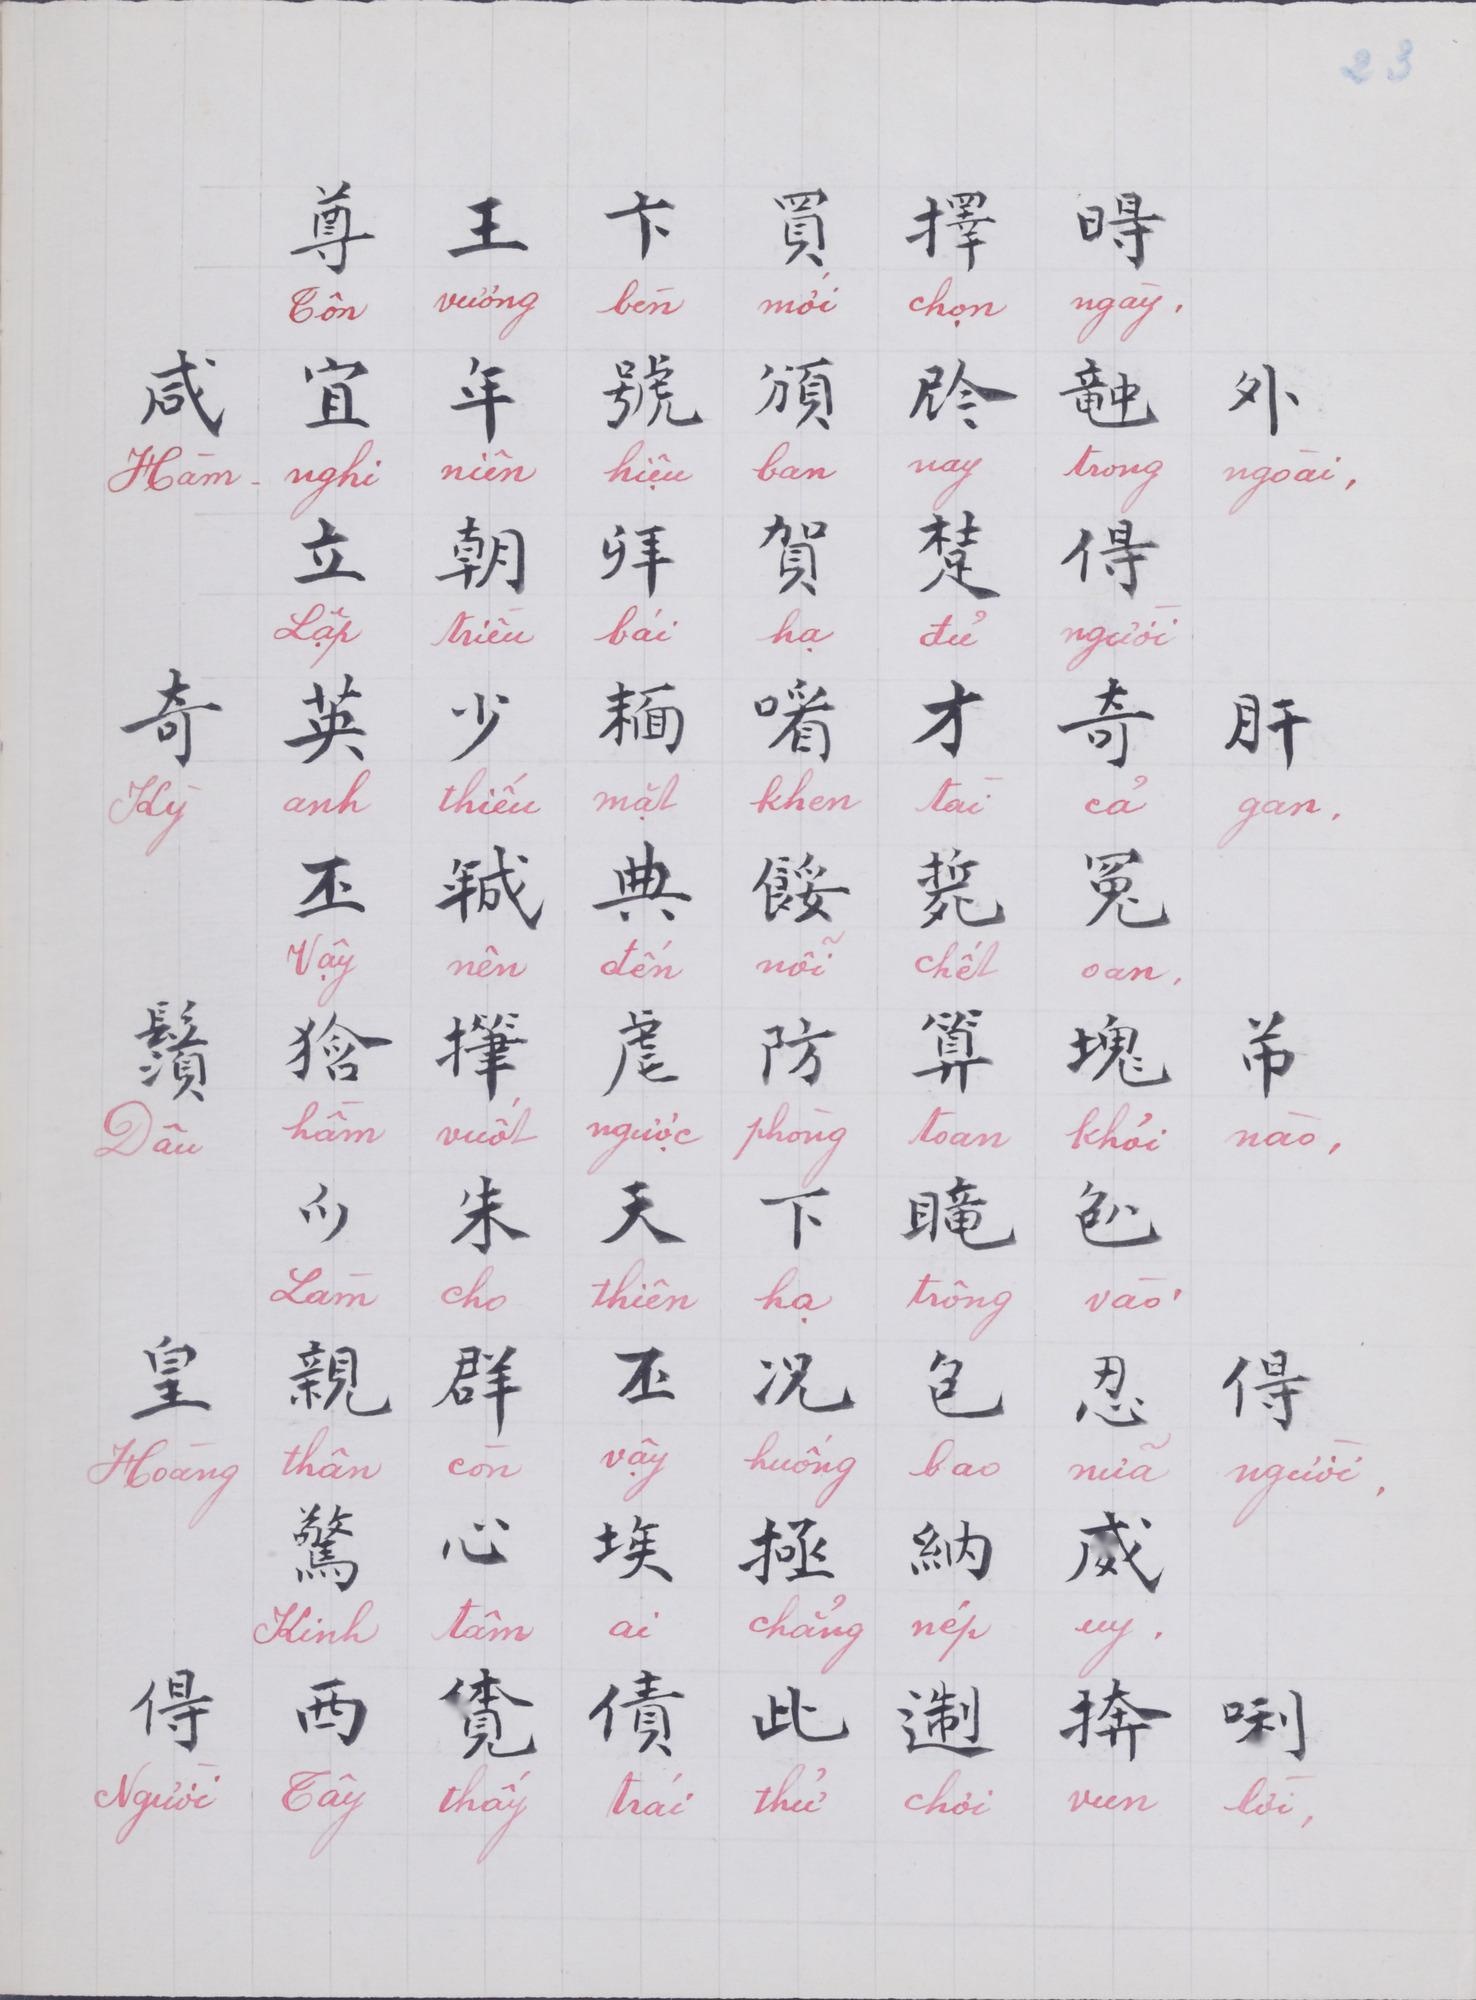 23
尊 王 卞 買 擇 㫷
Tôn vương bèn mới chọn ngày,
咸 宜 年 號 頒 𫢩 𥪝 外
Hàm-nghi niên hiệu ban nay trong ngoài,
立 朝 拜 賀 𨇜 㝵
Lập triều bái hạ đủ người
奇 英 少 𩈘 㗂 才 奇 肝
Kỳ anh thiếu mặt khen tài cả gan,
丕 𢧚 典 餒 𣩂 冤
Vậy nên đến nỗi chết oan,
鬚 㺖 撶 虐 防 算 塊 芇
Dâu hầm vuốt ngược phòng toan khỏi nào,
𫜵 朱 天 下 𥊚 𠓨
Làm cho thiên hạ trông vào
皇 親 群 丕 况 包 忍 㝵
Hoàng thân còn vậy huống bao nữa người,
驚 心 埃 極 納 威
Kinh tâm ai chẳng nép uy,
㝵 西 覓 債 此 𨔈 捹 唎
Người Tây thấy trái thử chơi vun lời,